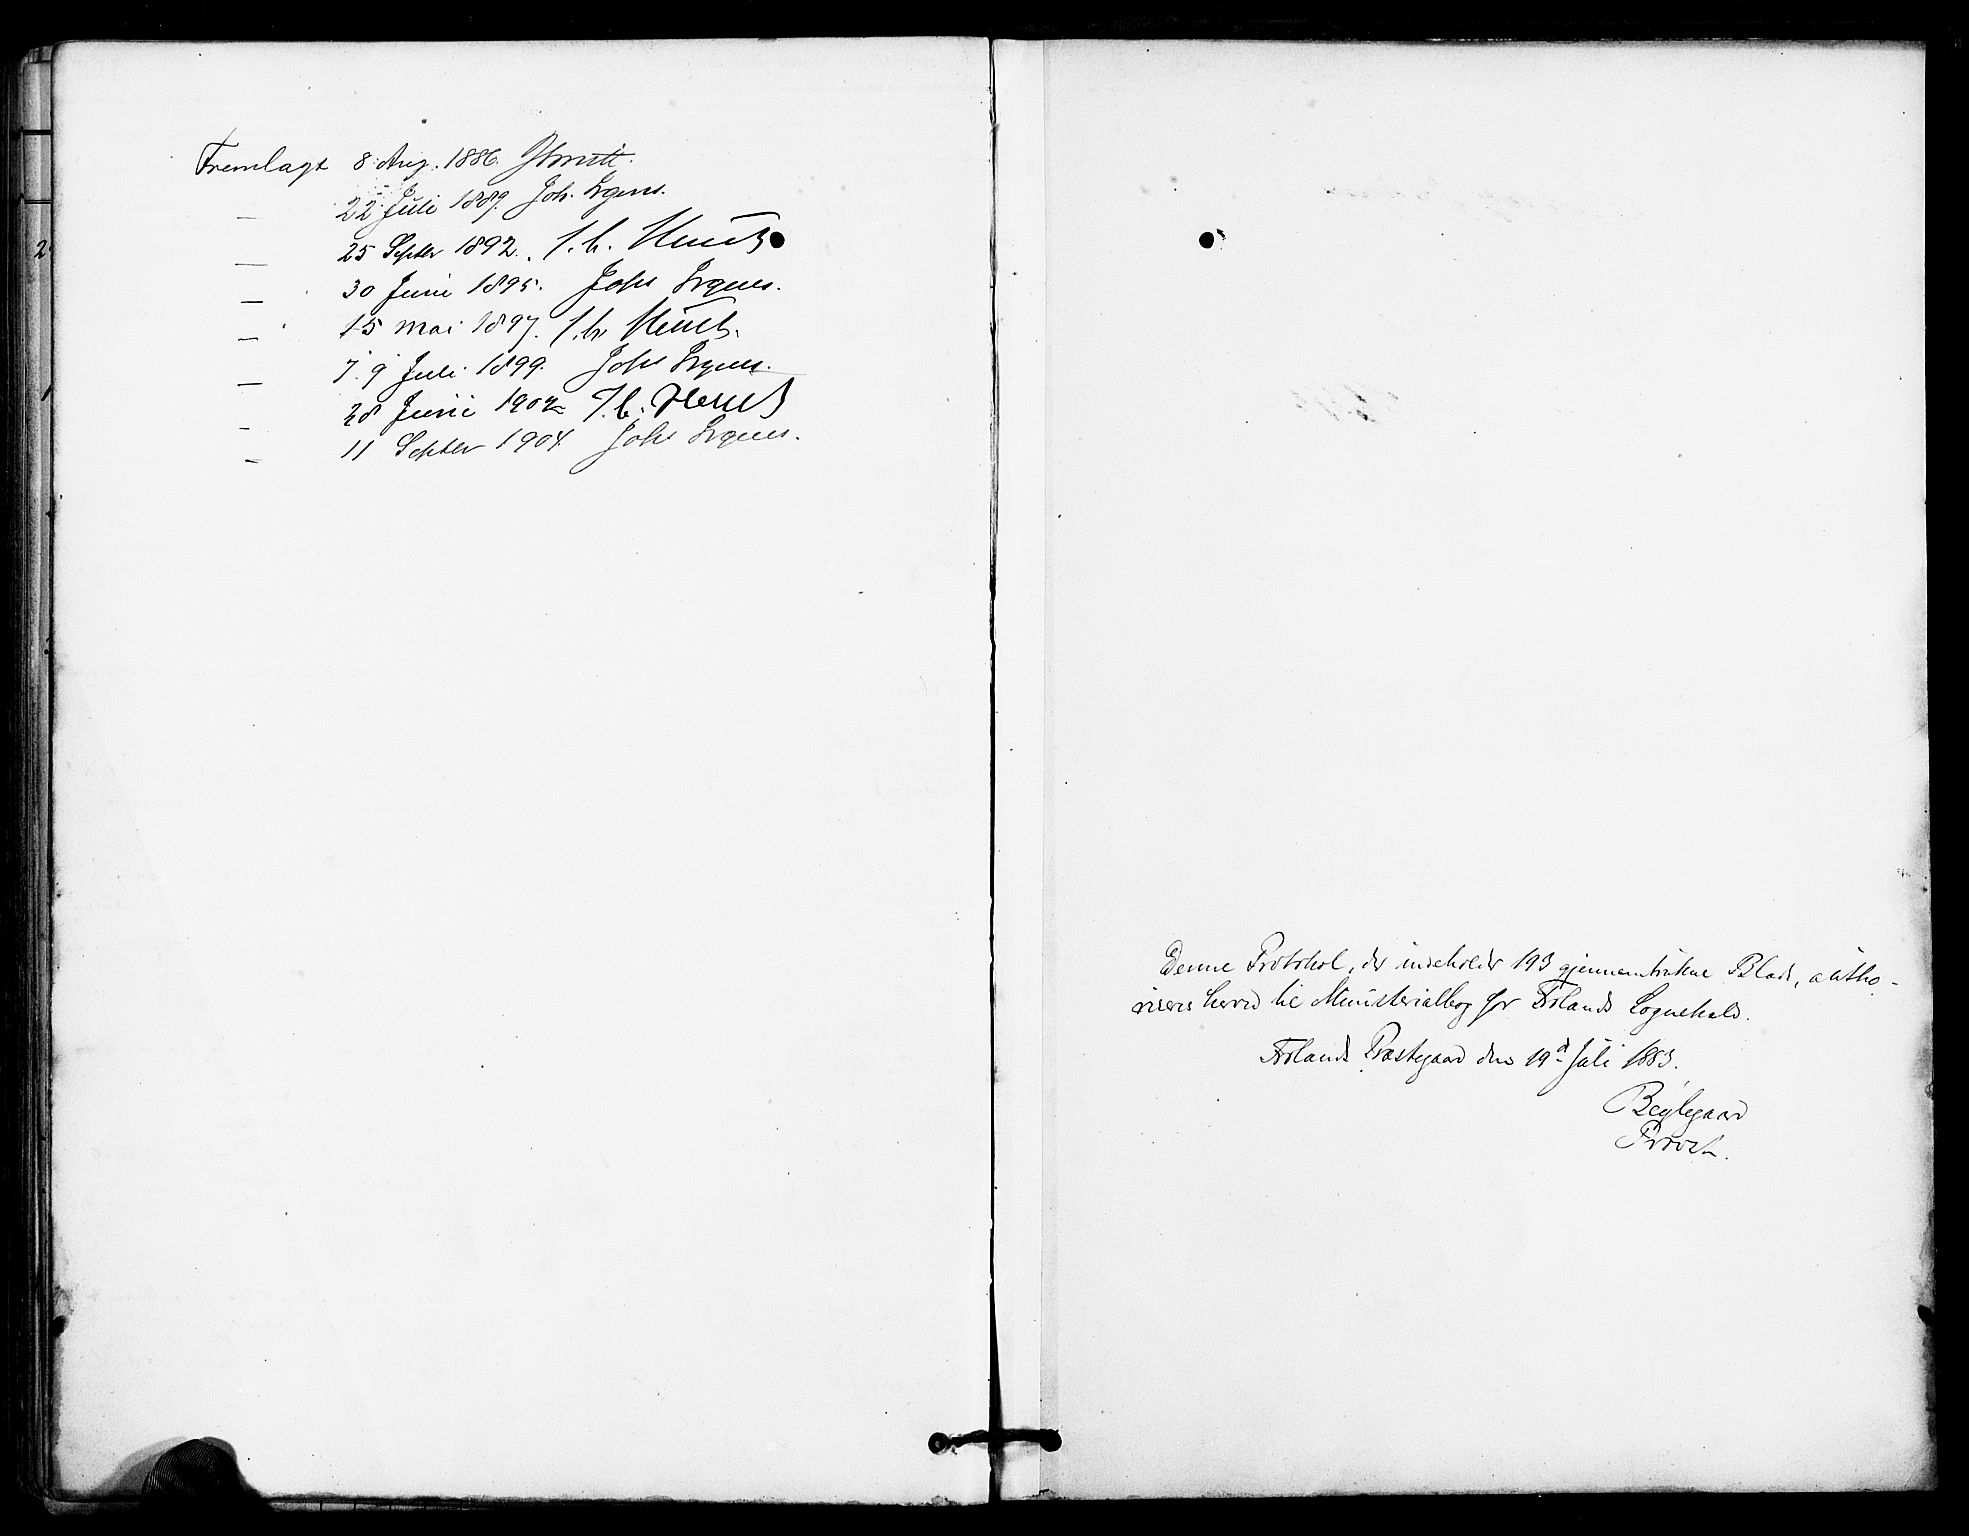 Fremlagt 8 Aug. 1886.
— 22 Juli 1889. Joh. Irgens.
— 25 Septbr 1892. J. C. Heuch
— 30 Juni 1895. Johs Irgens.
— 15 mai 1897. J. C. Heuch.
— 9 Juli 1899. Johs Irgens.
— 28 Juni 1902 J. C. Heuch
— 11 Septbr 1904 Johs Irgens.
2
Denne Protokol, der indeholder 193 gjennemtrukne Blade, autho-
riseres herved til Ministerialbog for Sognekald.
Præstegaard den 19d Juli 1883.
Beylegaard
Provst.